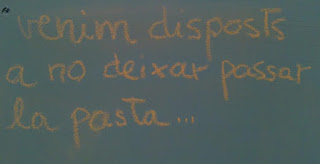 venim disposts
a no deixar passar
la pasta...